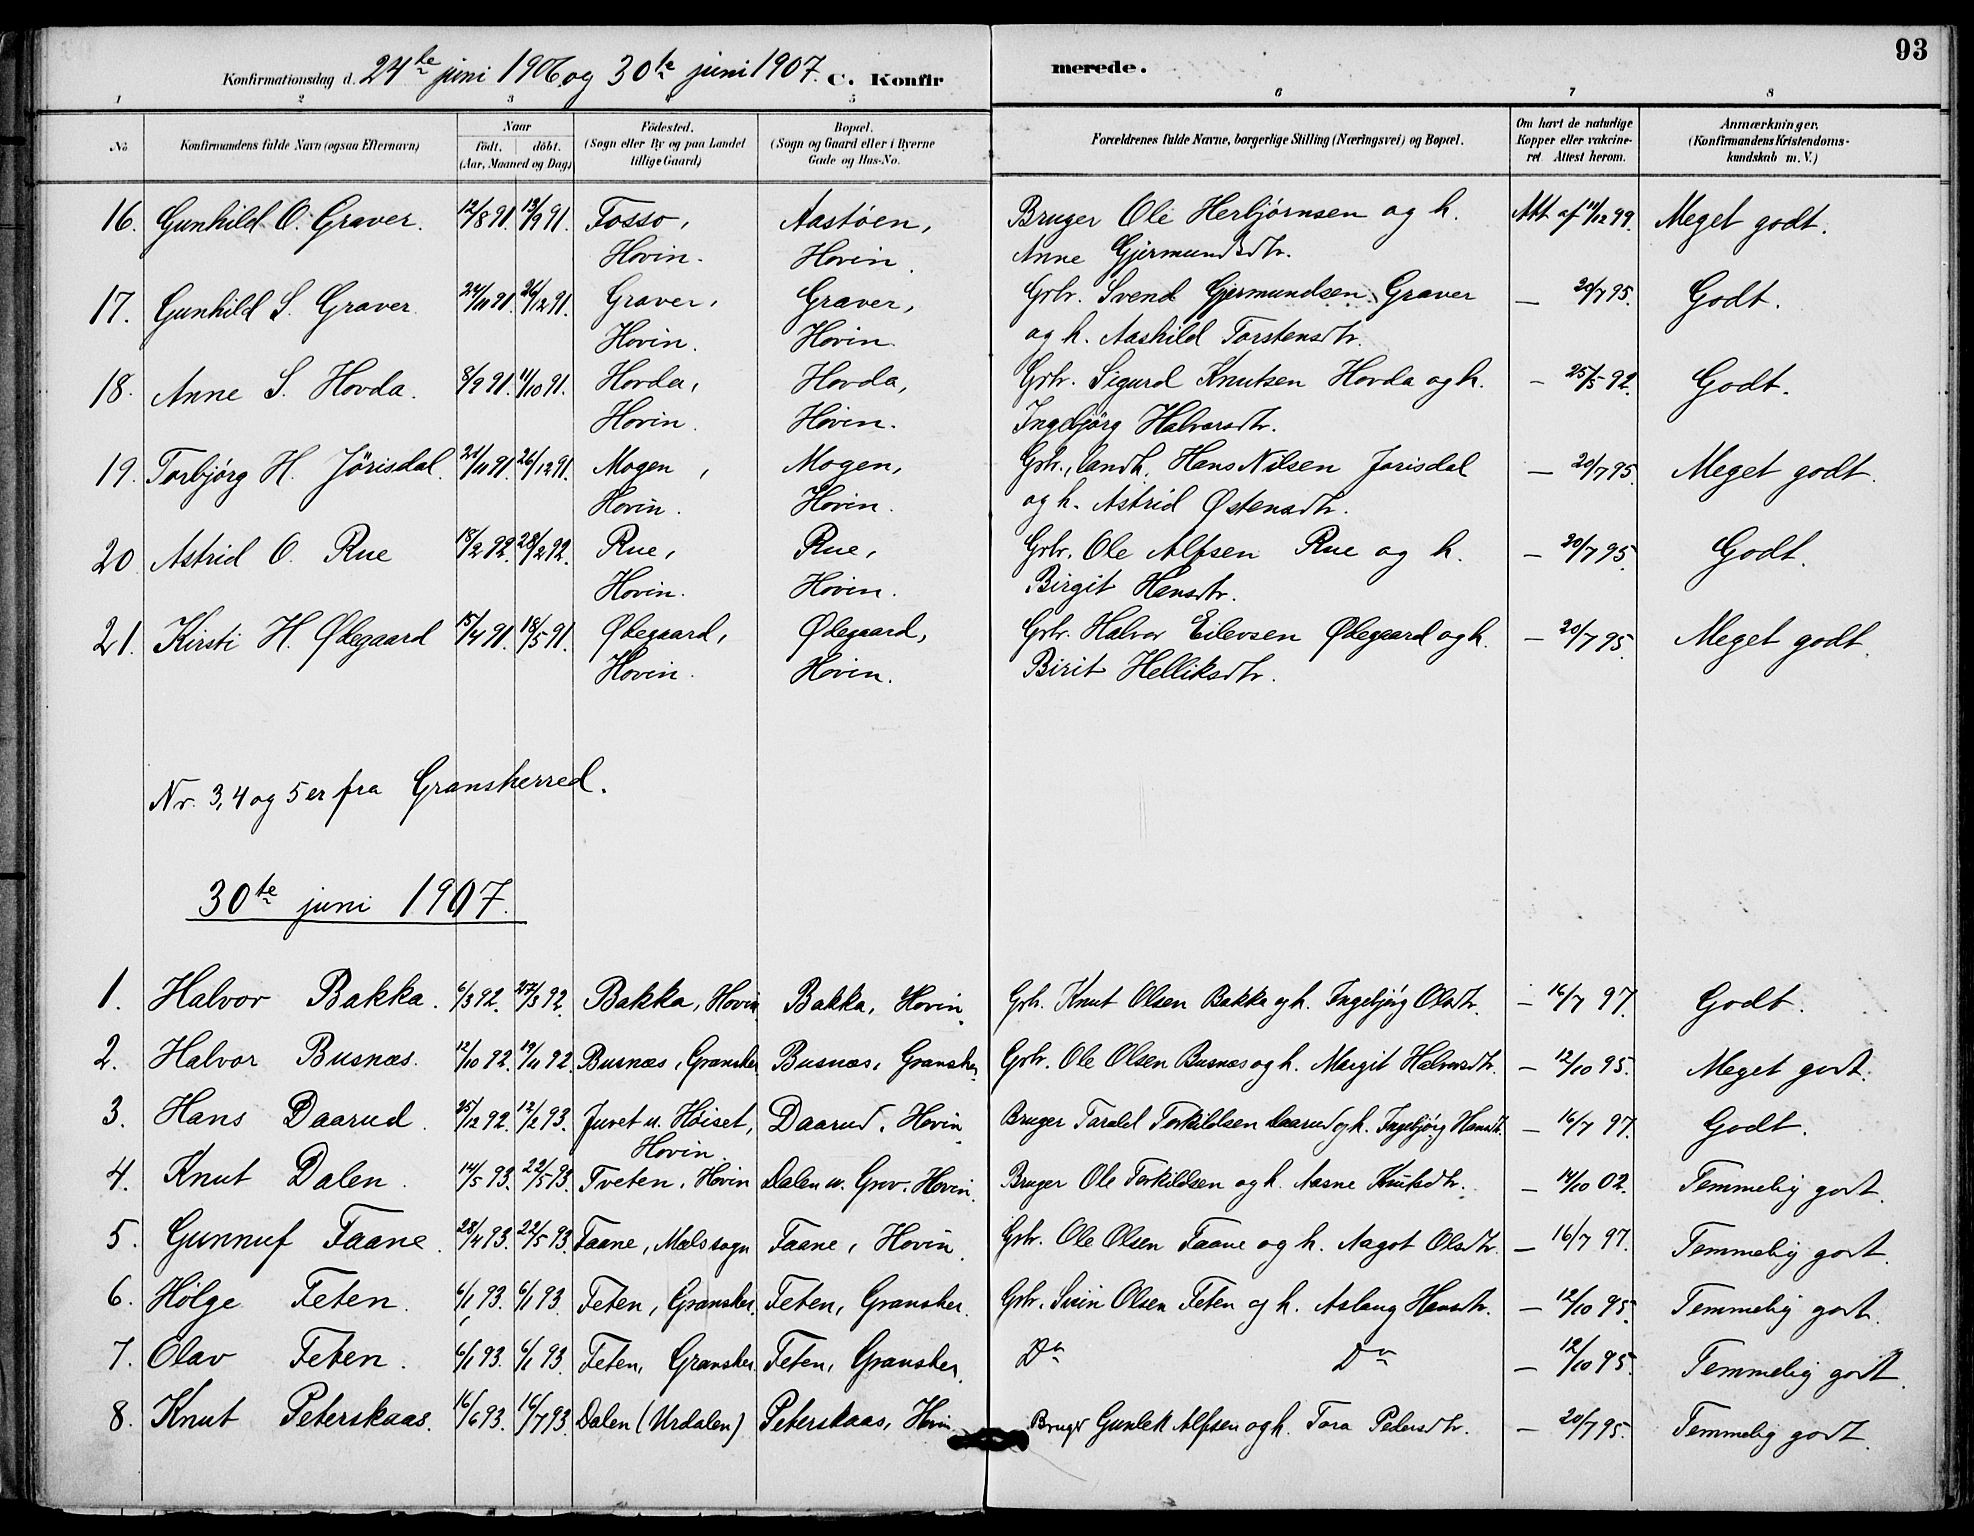 93
Konfirmationsdag d. 24de juni 1906 og 30te juni 1907. C. Konfirmerede.
1 2 3 4 5 6 7 8
No
Konfirmandens fulde Navn (ogsaa Efternavn)
Naar
födt. döbt.
(Aar, Maaned og Dag)
Födested.
(Sogn eller By og paa Landet
tillige Gaard)
Bopæl.
(Sogn og Gaard eller i Byerne
Gade og Hus-No.
Forældrenes fulde Navne, borgerlige Stilling (Næringsvei) og Bopæl.
Om havt de naturlige
Kopper eller vakcine-
ret Attest herom.
Anmærkninger.
(Konfirmandens Kristendoms-
kundskab m. V.)
16. Gunhild O. Graver. 12/8 91. 13/9 91. Fosso, Aastøen, Bruger Ole Herbjørnsen og h. Att af 11/12 99. Meget godt.
Hovin. Hovin. Anne Gjermundsdtr.
17. Gunhild S. Graver 24/11 91. 26/12 91. Graver, Graver, Grbr. Svend Gjermundsen Graver — 20/7 95. Godt.
Hovin. Hovin. og h. Aashild Torstensdtr.
18. Anne S. Hovda. 8/9 91. 11/10 91. Hovda, Hovda, Grbr. Sigurd Knutsen Hovda og h. — 25/5 92. Godt.
Hovin. Hovin. Ingebjørg Halvorsdtr.
19. Torbjørg H. Jørisdal. 21/11 91. 26/12 91. Mogen, Mogen, Grbr., landh. Hans Nilsen Jorisdal — 20/7 95. Meget godt.
Hovin. Hovin. og h. Astrid Østensdtr.
20 Astrid O. Rue 18/2 92. 28/2 92. Rue, Rue, Grbr. Ole Alfsen Rue og h. — 20/7 95. Godt.
Hovin. Hovin. Birgit Hansdtr.
21. Kirsti H. Ødegaard 15/4 91. 18/5 91. Ødegaard, Ødegaard, Grbr. Halvor Eilevsen Ødegaard og h. — 20/7 95. Meget godt.
Hovin. Hovin. Birit Helliksdtr.
Nr. 3, 4 og 5 er fra Gransherred.
30te juni 1907.
1. Halvor Bakka. 6/3 92. 27/3 92. Bakka, Hovin Bakka, Hovin. Grb. Knut Olsen Bakka og h. Ingebjørg Olsdtr. — 16/7 97. Godt.
2. Halvor Busnæs. 12/10 92. 19/11 92. Busnæs, Gransher. Busnæs, Gransher. Grbr. Ole Olsen Busnæs og h. Margit Halvorsdtr. — 12/10 95. Meget godt.
3. Hans Daarud. 25/12 92. 12/2 93. Juvet u. Høiset, Daarud, Hovin. Bruger Tarald Torkildsen Daarud og h. Ingebjørg Hansdtr. — 16/7 97. Godt.
Hovin.
4. Knut Dalen. 14/5 93. 22/5 93. Tveten, Hovin Dalen u. Grv. Hovin. Bruger Ole Torkildsen og h. Aasne Knutsdtr. — 14/10 02. Temmelig godt.
5. Gunnuf Faane. 28/4 93. 22/5 93. Faane, Mæls sogn Faane, Hovin. Grbr. Ole Olsen Faane og h. Aagot Olsdtr. — 16/7 97. Temmelig godt.
6. Hølge Feten. 6/1 93. 6/1 93. Feten, Gransher. Feten, Gransher. Grbr. Svein Olsen Feten og h. Aslaug Hansdtr. — 12/10 95. Temmelig godt.
7. Olav Feten. 6/1 93. 6/1 93. Feten, Gransher. Feten, Gransher. Do Do — 12/10 95. Temmelig godt.
8. Knut Peterskaas. 16/6 93. 16/7 93. Dalen (Urdalen) Peterskaas, Hovin. Bruger Gunlek Alfsen og h. Tora Pedersdtr. — 20/7 95. Temmelig godt.